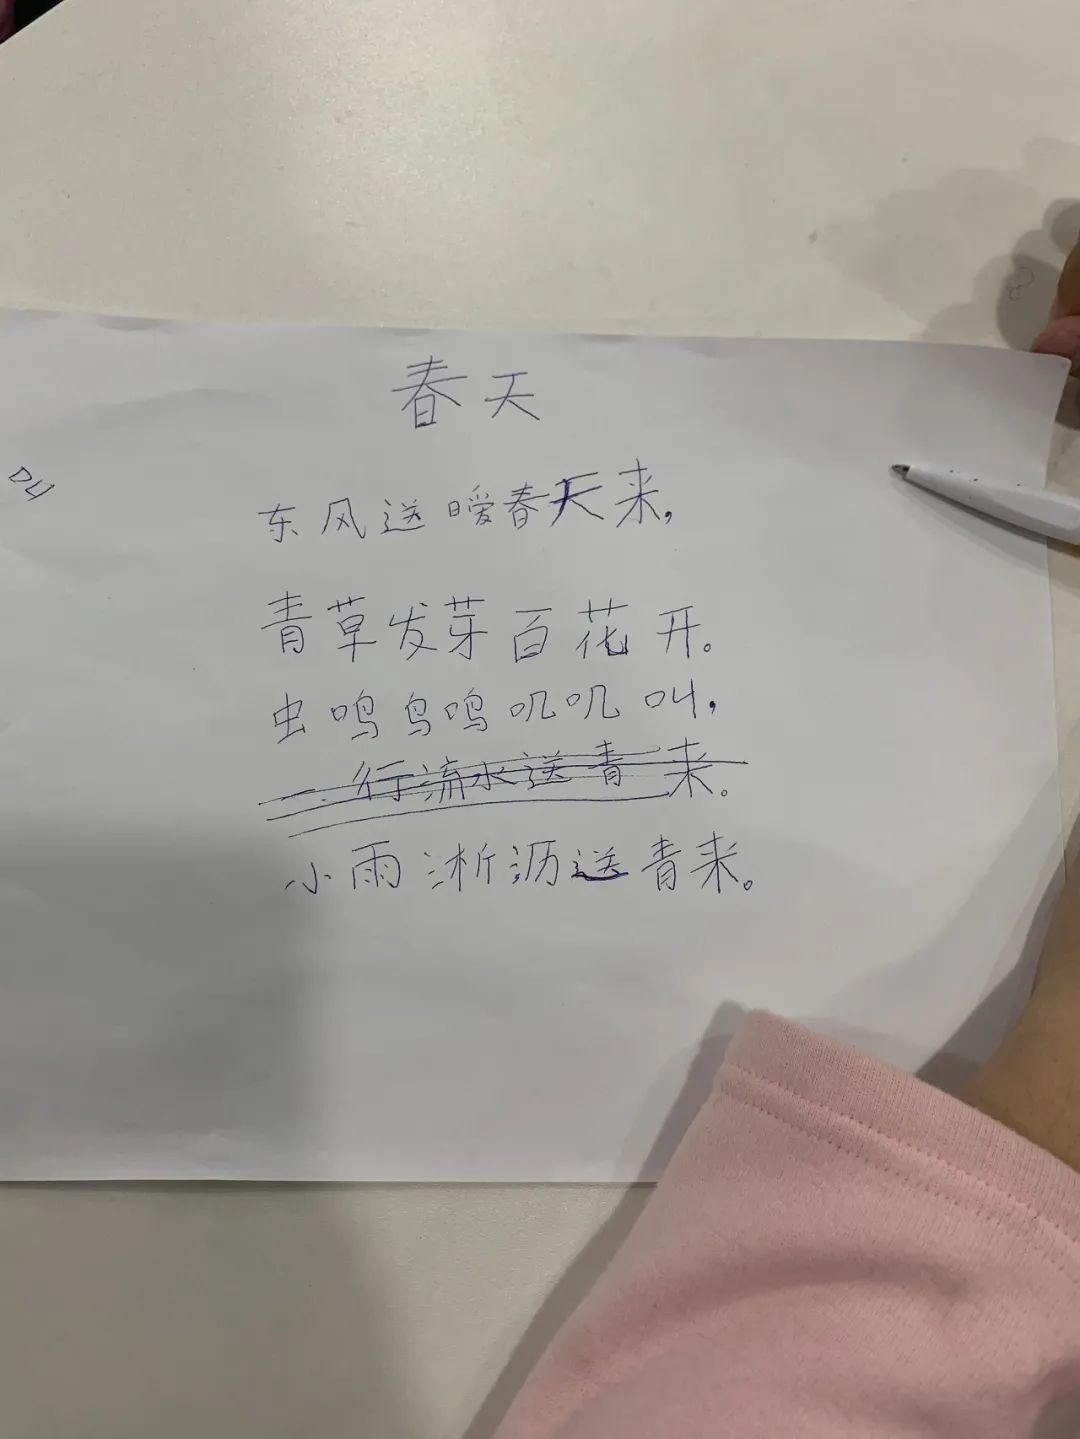 春天
东风送暖春天来，
青草发芽百花开。
虫鸣鸟鸣叽叽叫，
一行流水送青来。
小雨淅沥送青来。